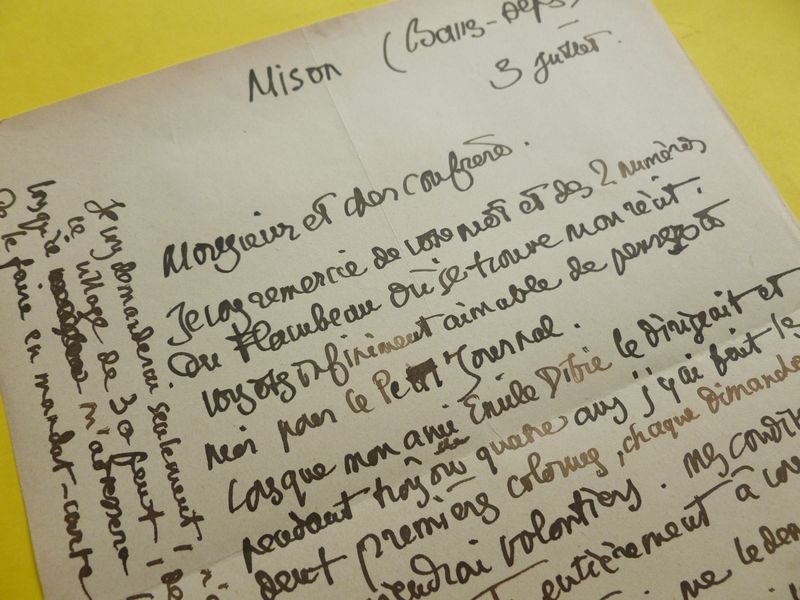 Mison (Basses-Alpes)
3 juillet.
Monsieur et cher confrère.
Je vous remercie de votre mot et des 2 numéros
du Flambeau où se trouve mon récit.
Vous êtes infiniment aimable de penser à
moi pour le Petit Journal.
Lorsque mon ami Emile le dirigeait et
pendant trois ou quatre ans j'y ai fait le
premières colonnes, chaque dimanche
volontiers. mes condit
entièrement à vous
me le dem
Je vous demanderai seulement, n'
ce village de 300 feux, de
lorsqu'il m'adressera
de le faire en mandat-carte